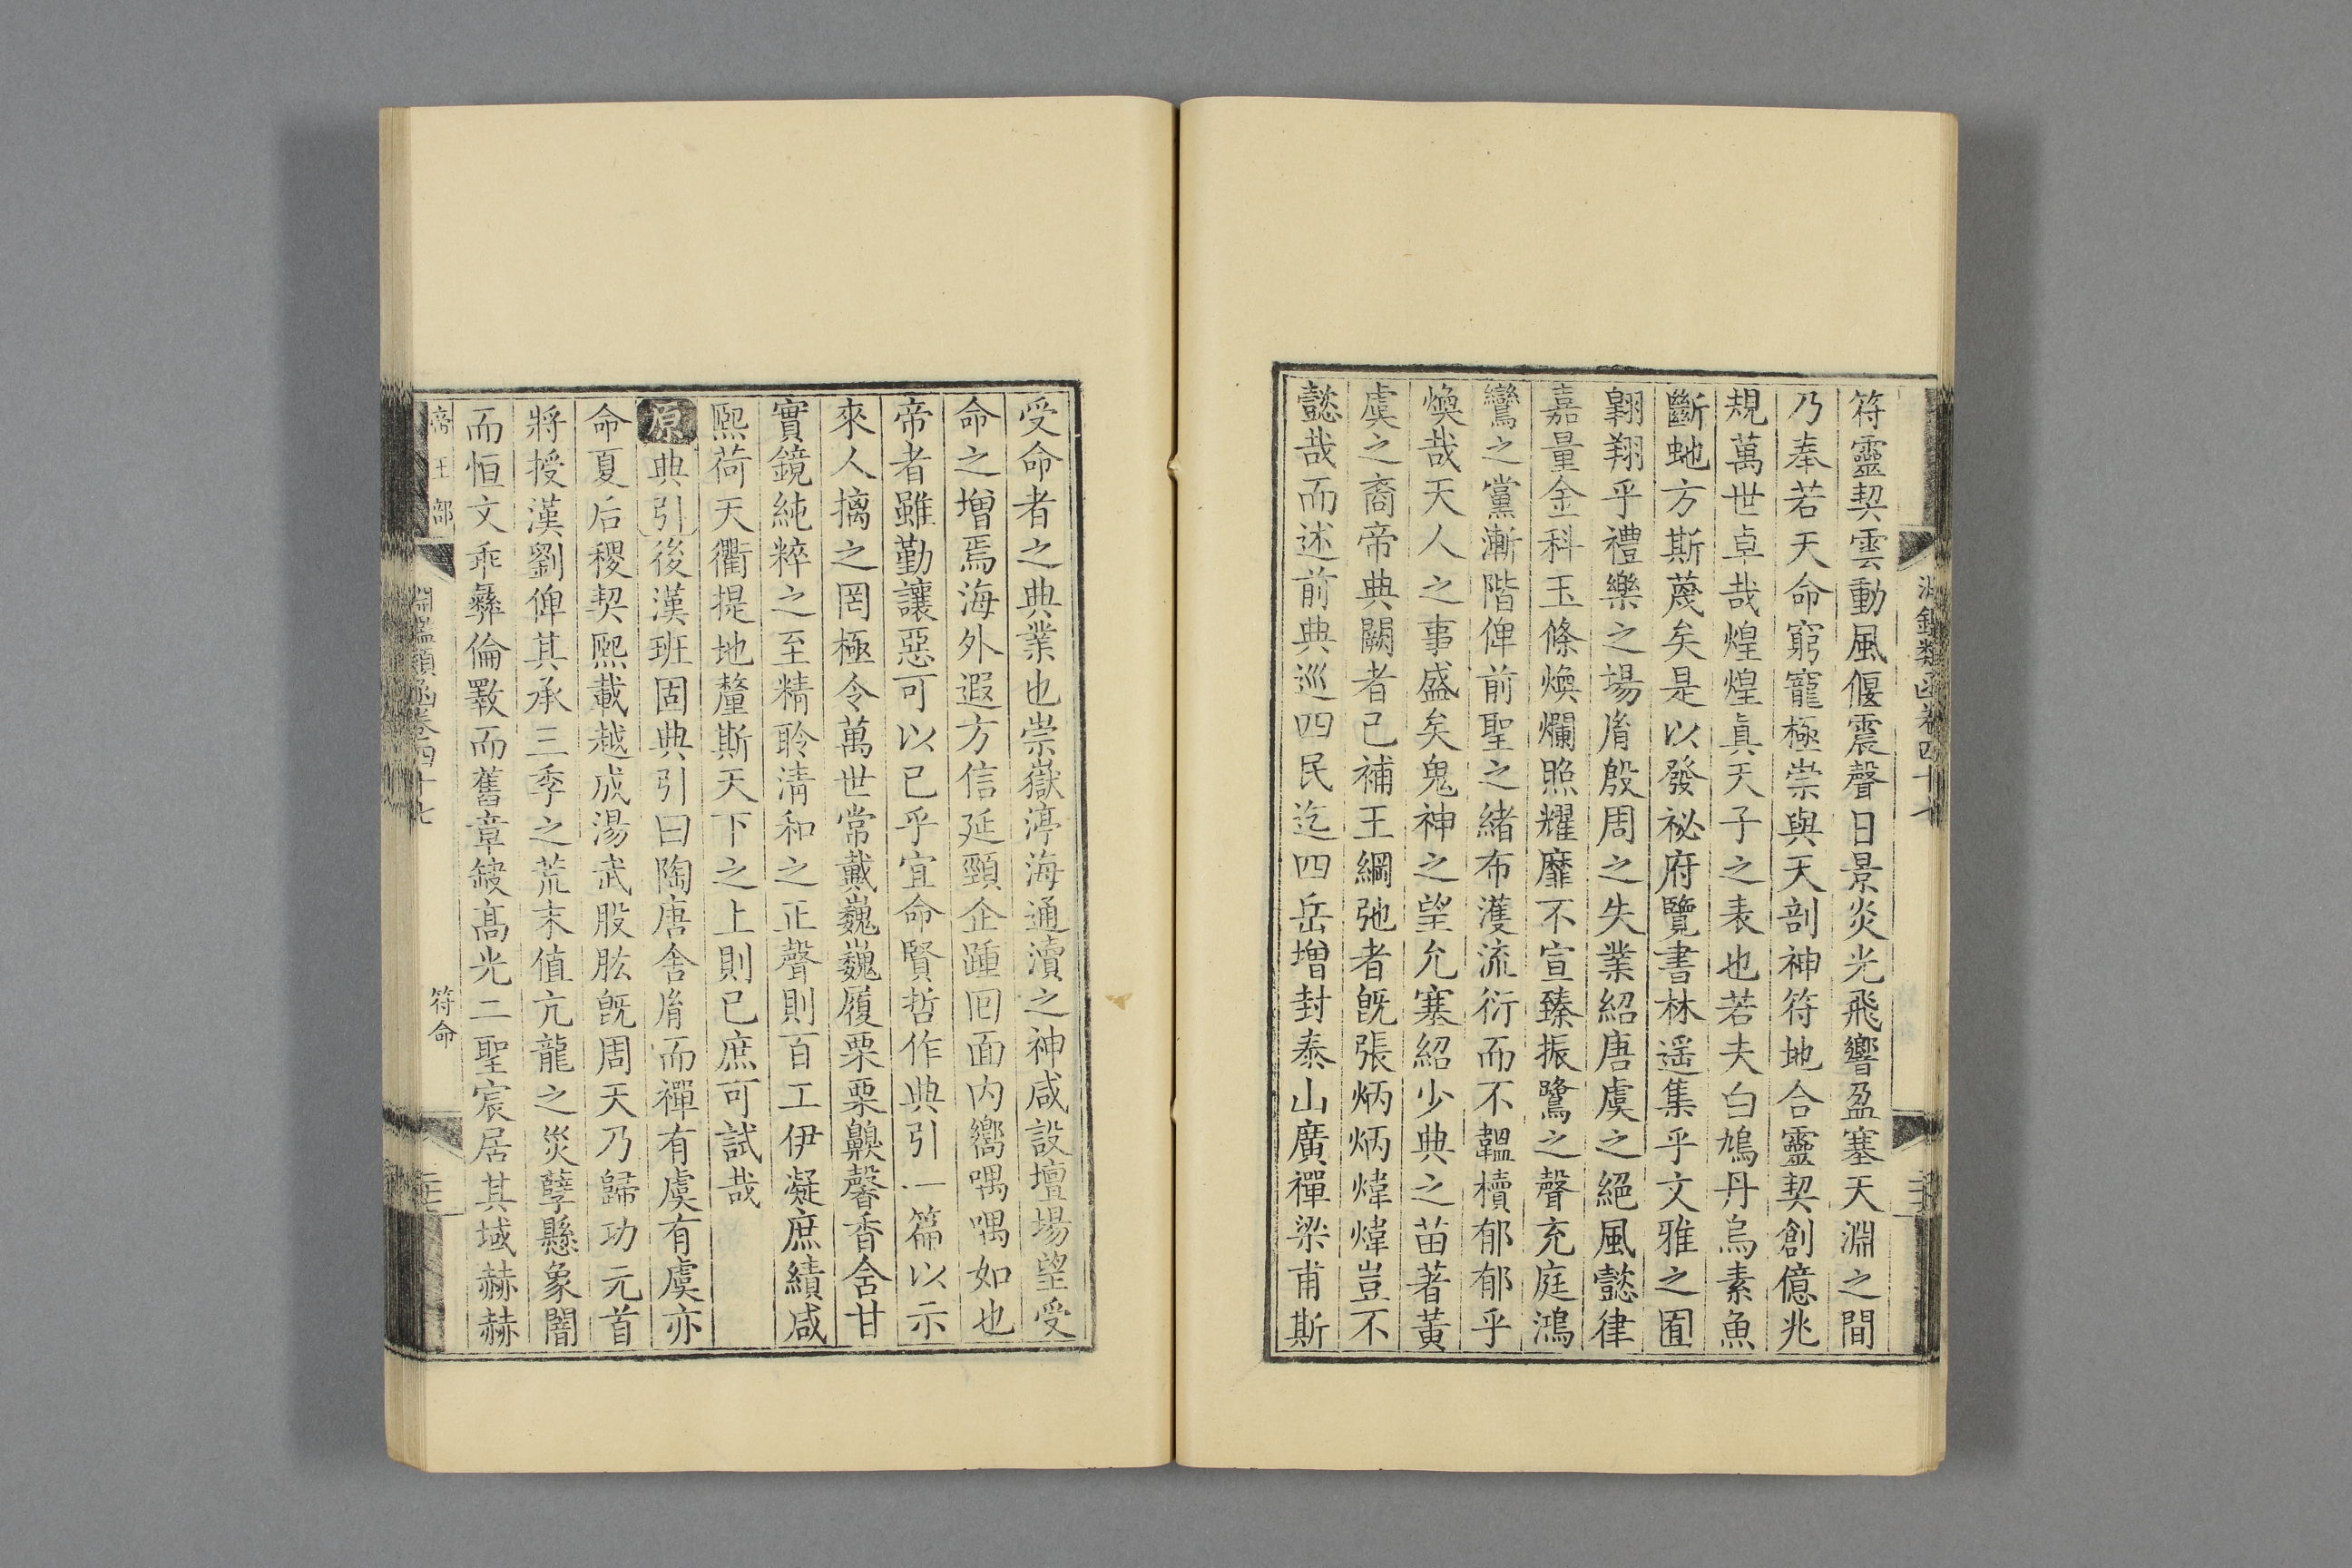 符靈契雲動風偃震聲日景炎光飛響盈塞天淵之間
乃奉若天命窮寵極崇與天剖神符地合靈契創億兆
規萬世卓哉煌煌眞天子之表也若夫白鳩丹烏素魚
斷虵方斯蔑矣是以發祕府覽書林遥集乎文雅之囿
翺翔乎禮樂之場胤殷周之失業紹唐虞之絕風懿律
嘉量金科玉條煥爛照耀靡不宣臻振鷺之聲充庭鴻
鸞之黨漸階俾前聖之緒布濩流衍而不韞櫝郁郁乎
煥哉天人之事盛矣鬼神之望允塞紹少典之苗著黃
虞之裔帝典闕者已補王綱弛者旣張炳炳煒煒豈不
懿哉而述前典巡四民迄四岳增封泰山廣禪梁甫斯
淵鑑類函卷四十七
受命者之典業也崇嶽渟海通瀆之神咸設壇場望受
命之增焉海外遐方信延頸企踵回面内嚮喁喁如也
帝者雖勤讓惡可以已乎宜命賢哲作典引一篇以示
來人摛之罔極令萬世常戴巍巍履栗栗臭馨香含甘
實鏡純粹之至精聆淸和之正聲則百工伊凝庶績咸
熙荷天衢提地釐斯天下之上則已庶可試哉
原典引後漢班固典引曰陶唐舍胤而禪有虞有虞亦
命夏后稷契熙載越成湯武股肱旣周天乃歸功元首
將授漢劉俾其承三季之荒末值亢龍之災孽懸象闇
而恒文乖彝倫斁而舊章缺髙光二聖宸居其域赫赫
帝王部 淵鑑類函卷四十七 符命